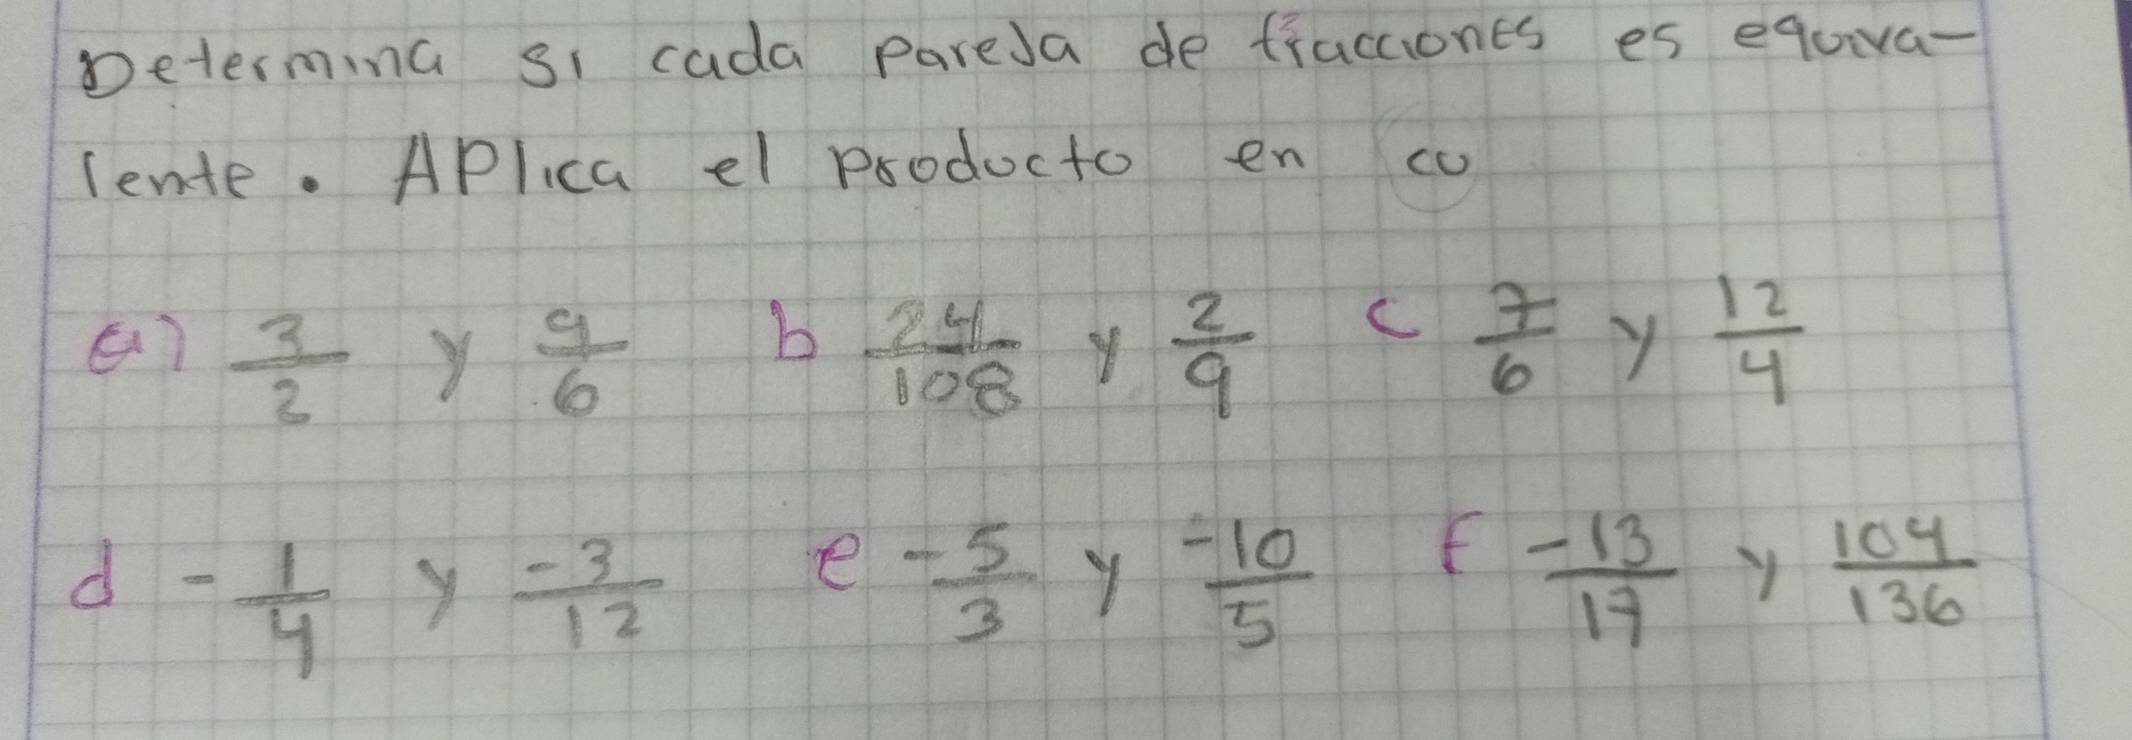 Determina si cada pareja de fracciones es equiva-
lente. Aplica el producto en cu
a) 3/2 y 9/6 b 24/108 y 2/9 c 7/6 y 12/4
d -1/4 y -3/12 e -5/3 y -10/5 f -13/17 y 104/136